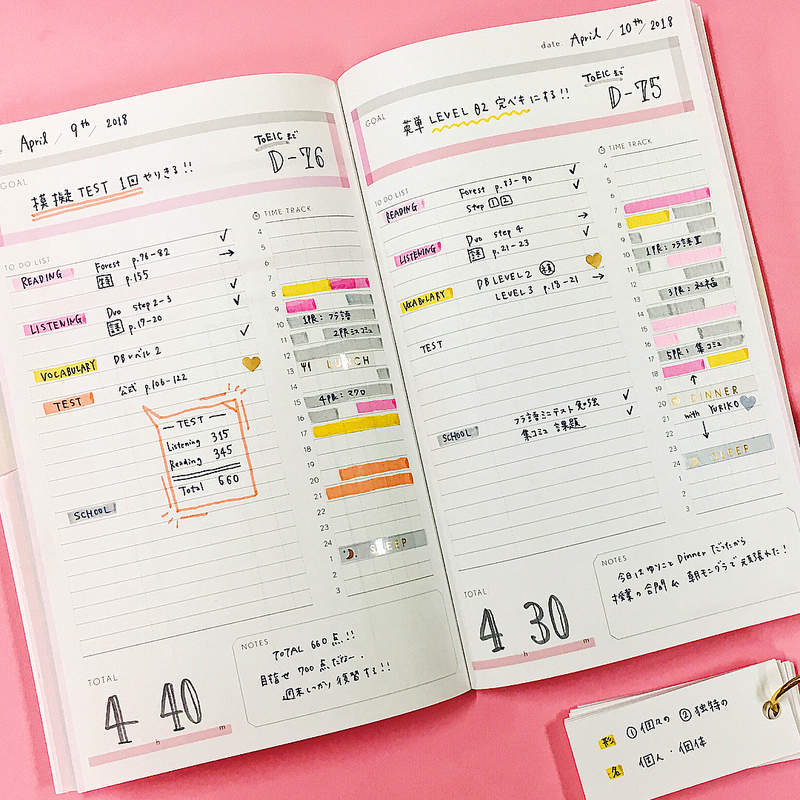 April / 9th / 2018
GOAL
TOEICまで
D-76
模擬 TEST 1回 やりきる!!
TO DO LIST
READING
Forest p.76-82 ✓
p.155 →
LISTENING
Duo step 2-3 ✓
p.17-20 ✓
VOCABULARY
DBレベル2 ✓
TEST
公式 p.106-122
— TEST —
Listening 315
Reading 345
Total 660
SCHOOL
TIME TRACK
4
5
6
7
8
9
10 1限:フラ語
11 2限:
12
13 LUNCH
14
15 4限:マクロ
16
17
18
19
20
21
22
23
24
1 SLEEP
2
3
TOTAL
4 h 40 m
NOTES
TOTAL 660点!!
目指せ 700点だなー.
週末しっかり復習する!!
date April / 10th / 2018
GOAL
TOEICまで
D-75
英単 LEVEL 02 完ペキにする!!
TO DO LIST
READING
Forest p.83-90 ✓
Step ①② ✓
LISTENING
Duo step 4 →
p.21-23 ✓
VOCABULARY
DB LEVEL 2
LEVEL 3 p.18-21 →
TEST
SCHOOL
フラ語ミニテスト勉強 ✓
集コミュ 課題 ✓
TIME TRACK
4
5
6
7
8
9
10 1限:フラ語II
11
12
13 3限:社福
14
15
16
17 5限:集コミュ
18
19
20 DINNER
21 with YURIKO
22
23
24 SLEEP
1
2
3
TOTAL
4 h 30 m
NOTES
今日はゆりことDinnerだったから
授業の合間& 朝モングラで頑張れた!
形 ①個々の ②独特の
名 個人・個体